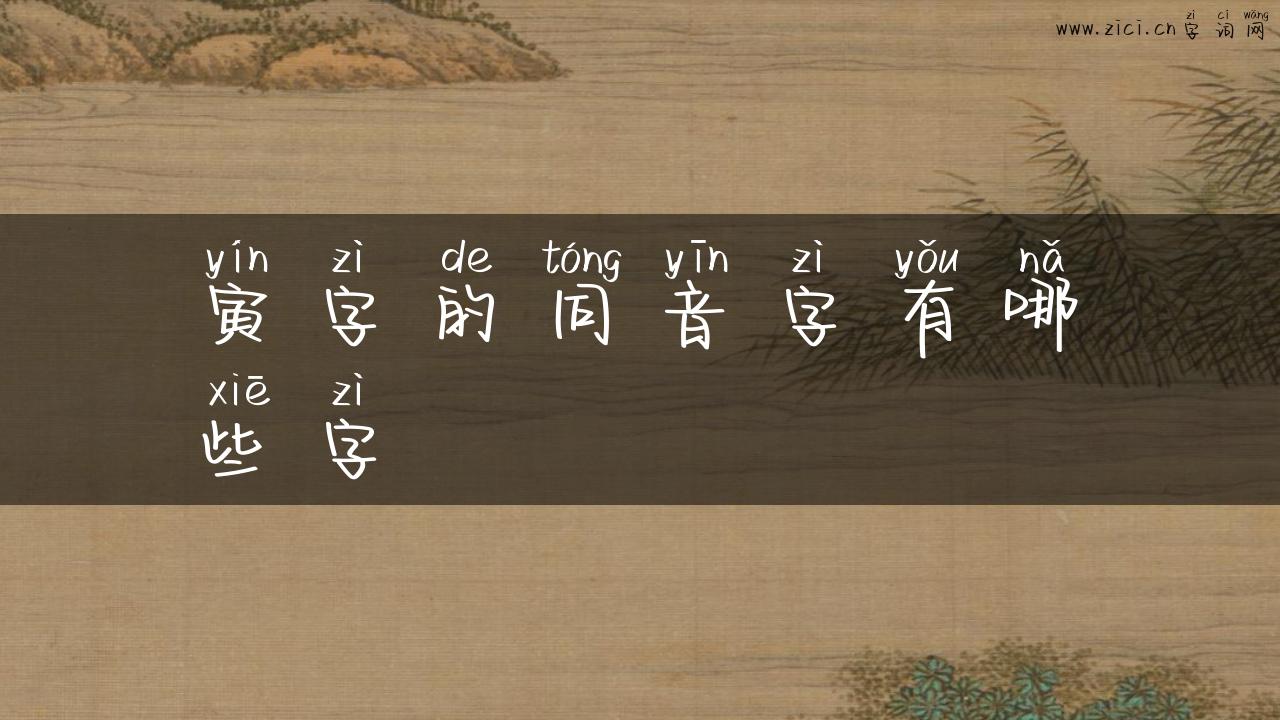 zì cí wǎng
www.zici.cn 字 词 网
yín zì de tóng yīn zì yǒu nǎ
寅 字 的 同 音 字 有 哪
xiē zì
些 字